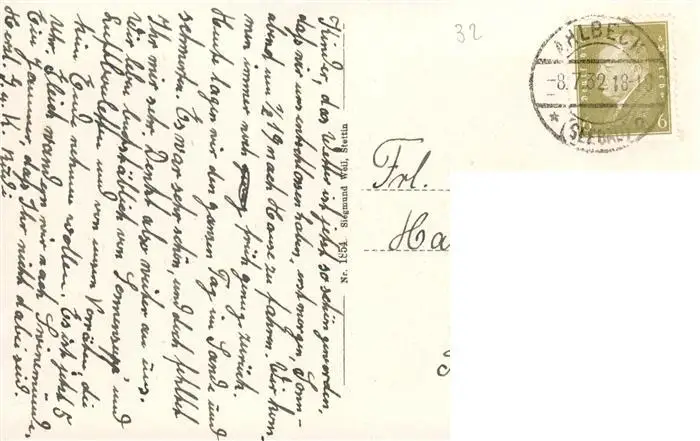 Kinder, das Wetter ist jetzt so schön geworden,
daß wir uns entschlossen haben, erst morgen, Sonn-
abend um ½ 19 nach Hause zu fahren. Wir kom-
men immer noch früh genug zurück.
Heute lagen wir den ganzen Tag im Sande und
schmorten. Es war sehr schön, und doch fehltet
Ihr mir sehr. Denkt also weiter an uns.
Wir leben buchstäblich von Sonnensuppe, und
Luftbouletten und von unsern Vorräten, die
kein Ende nehmen wollen. Es ist jetzt 5
Uhr. Gleich wandern wir nach Swinemünde.
Ein Jammer, daß Ihr nicht dabei seid.
Herzl. G. u. K. Rudi
Nr. 1854. Siegmund Weil, Stettin
32
AHLBECK
-8.7.32.18-
(SEEBAD)
6
Frl.
Ha